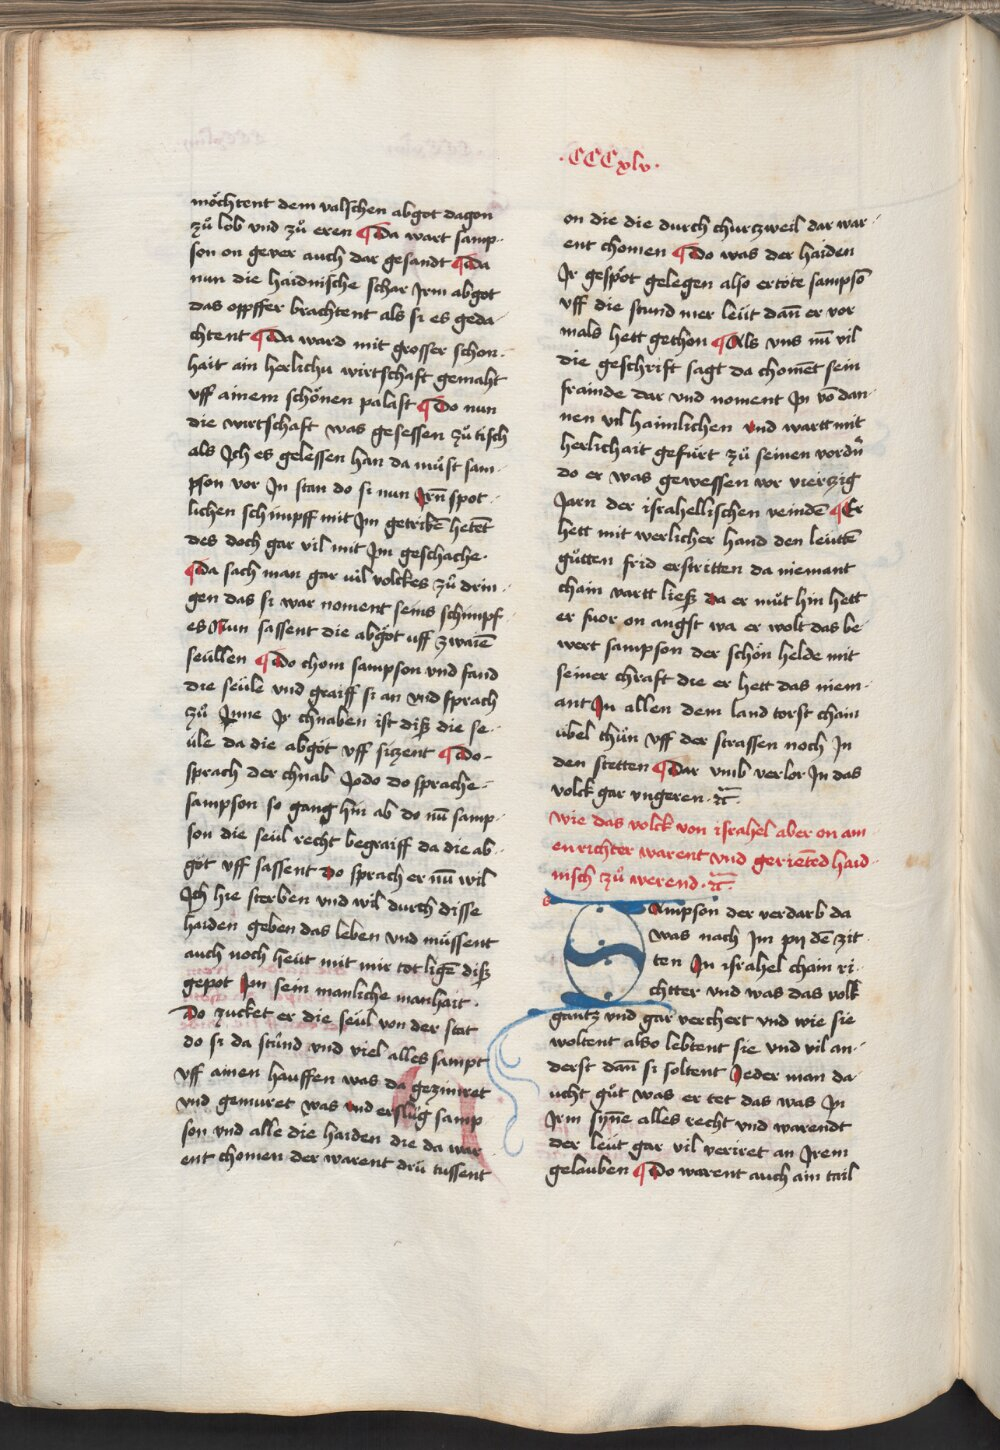 .CCCxlv.
möchtent dem valschen abgot dagon
zů lob vnd zů eren ¶ Da wart samp-
son on gever auch dar gesandt ¶ Da
nun die haidnische schar Jrm abgot
das opffer brachtent als si es geda-
chtent ¶ Da ward mit grosser schon-
hait ain herlichu wirtschaft gemaht
vff ainem schönen palast ¶ Do nun
die wirtschaft was gesessen zů tisch
als Jch es gelessen han da můst sam-
pson vor Jn stan do si nun Jrn̄ spot-
lichen schimpff mit Jm getribē hetēt
des doch gar vil mit Jm geschache.
¶ Da sach man gar vil volckes zů drin-
gen das si war noment seins schimpf
es Nun sassent die abgöt uff zwaiē
seüllen ¶ Do chom sampson vnd fand
die seüle vnd graiff si an vnd sprach
zů Jnne Jr chnaben ist diß die se-
üle da die abgöt vff sizent ¶ Do-
sprach der chnab Jodo do sprache-
sampson so gang hin ab do nū samp-
son die seül recht begraiff da die ab-
göt vff sassent do sprach er nū wil
Jch hie sterben vnd wil durch disse
haiden geben das leben vnd müssent
auch noch heüt mit mir tot ligē diß
gepot Jm sein manliche manhait.
Do zucket er die seül von der stat
do si da stůnd vnd viel alles sampt
vff ainen hauffen was da gezimret
vnd gemuret was vnd erslůg samp
son vnd alle die haiden die da war
ent chomen der warent drü tussent
on die die durch churczweil dar war-
ent chomen ¶ Do was der haiden
Jr gespöt gelegen also ertöte sampsō
vff die stund mer leüt dan̄ er vor
mals hett gethon ¶ Als vns nū vil
die geschrift sagt da chomēt sein
frainde dar vnd noment Jn vō dan-
nen vil haimlichen vnd wartt mit
herlichait gefürt zů seinen vordrn̄
do er was gewessen vor vierzig
Jarn der israhellischen veindē ¶ Er
hett mit werlicher hand den leüttē
gůtten frid erstritten da niemant
chain vartt ließ da er můt hin hett
er fuor on angst wa er wolt das be-
wert sampson der schön helde mit
seiner chraft die er hett das niem-
ant Jn allen dem land torst chain
übel thůn vff der strassen noch Jn
den stetten ¶ Dar vmb verlor Jn das
volck gar vngeren. ꝛc̄.
wie das volck von israhel aber on am-
en richter warent vnd geriēted haid-
nisch zů werend. ꝛc̄.
Sampson der verdarb da
was nach Jm pij dē zit-
ten Jn israhel chain ri-
chtter vnd was das volk
gantz vnd gar verchert vnd wie sie
woltent also lebtent sie vnd vil an-
derst dan̄ si soltent Jeder man da-
ucht gůt was er tet das was Jn
Jrm syn̄e alles recht vnd warendt
der leüt gar vil veriret an Jrem
gelauben ¶ Do warent auch ain tail